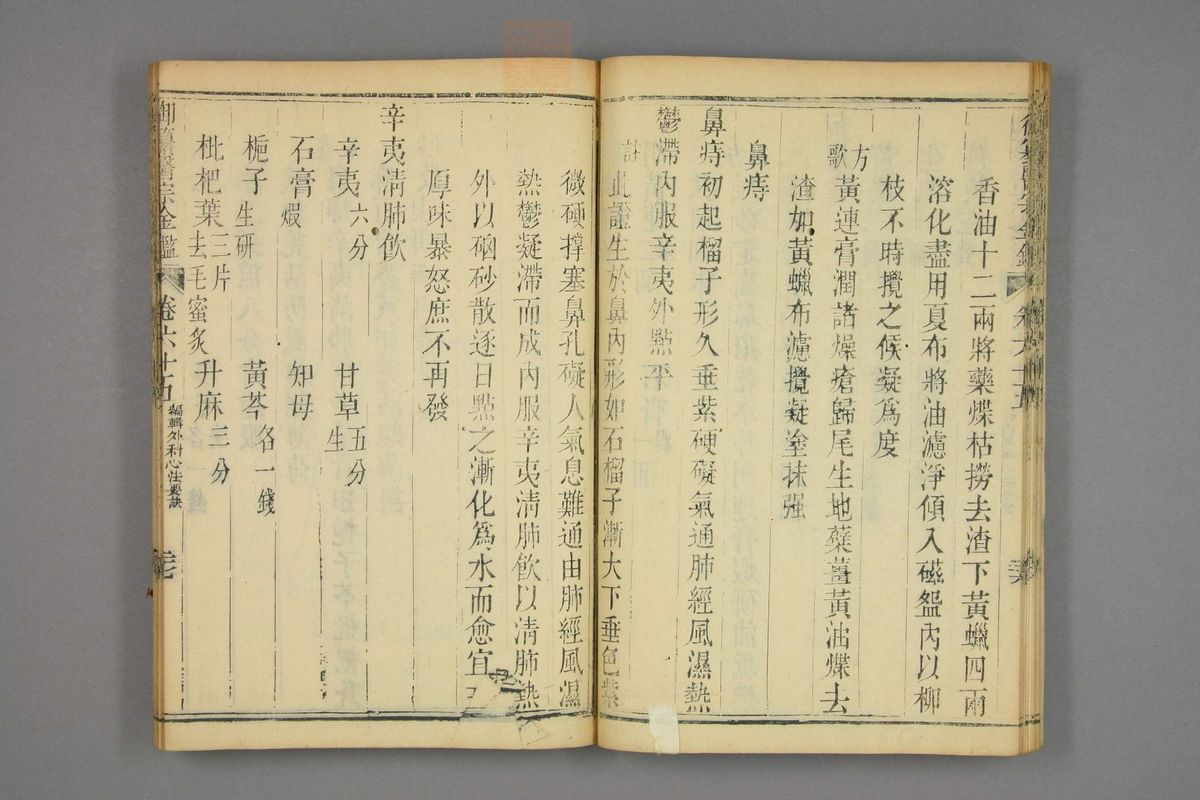 香油十二兩將藥煠枯撈去渣下黃蠟四兩
溶化盡用夏布將油濾淨傾入磁盌內以柳
枝不時攪之候凝爲度
方歌
黃連膏潤諸燥瘡歸尾生地蘗薑黃油煠去
渣加黃蠟布濾攪凝塗抹强
鼻痔
鼻痔初起榴子形久垂紫硬礙氣通肺經風濕熱
鬱滯內服辛夷外點平
註
此證生於鼻內形如石榴子漸大下垂色紫
微硬撐塞鼻孔礙人氣息難通由肺經風濕
熱鬱凝滯而成內服辛夷淸肺飲以淸肺熱
外以硇砂散逐日點之漸化爲水而愈宜
厚味暴怒庶不再發
辛夷淸肺飲
辛夷六分
甘草五分生
石膏煆
知母
梔子生研
黃芩各一錢
枇杷葉三片去毛蜜炙
升麻三分
卷六十五
編輯外科心法要訣